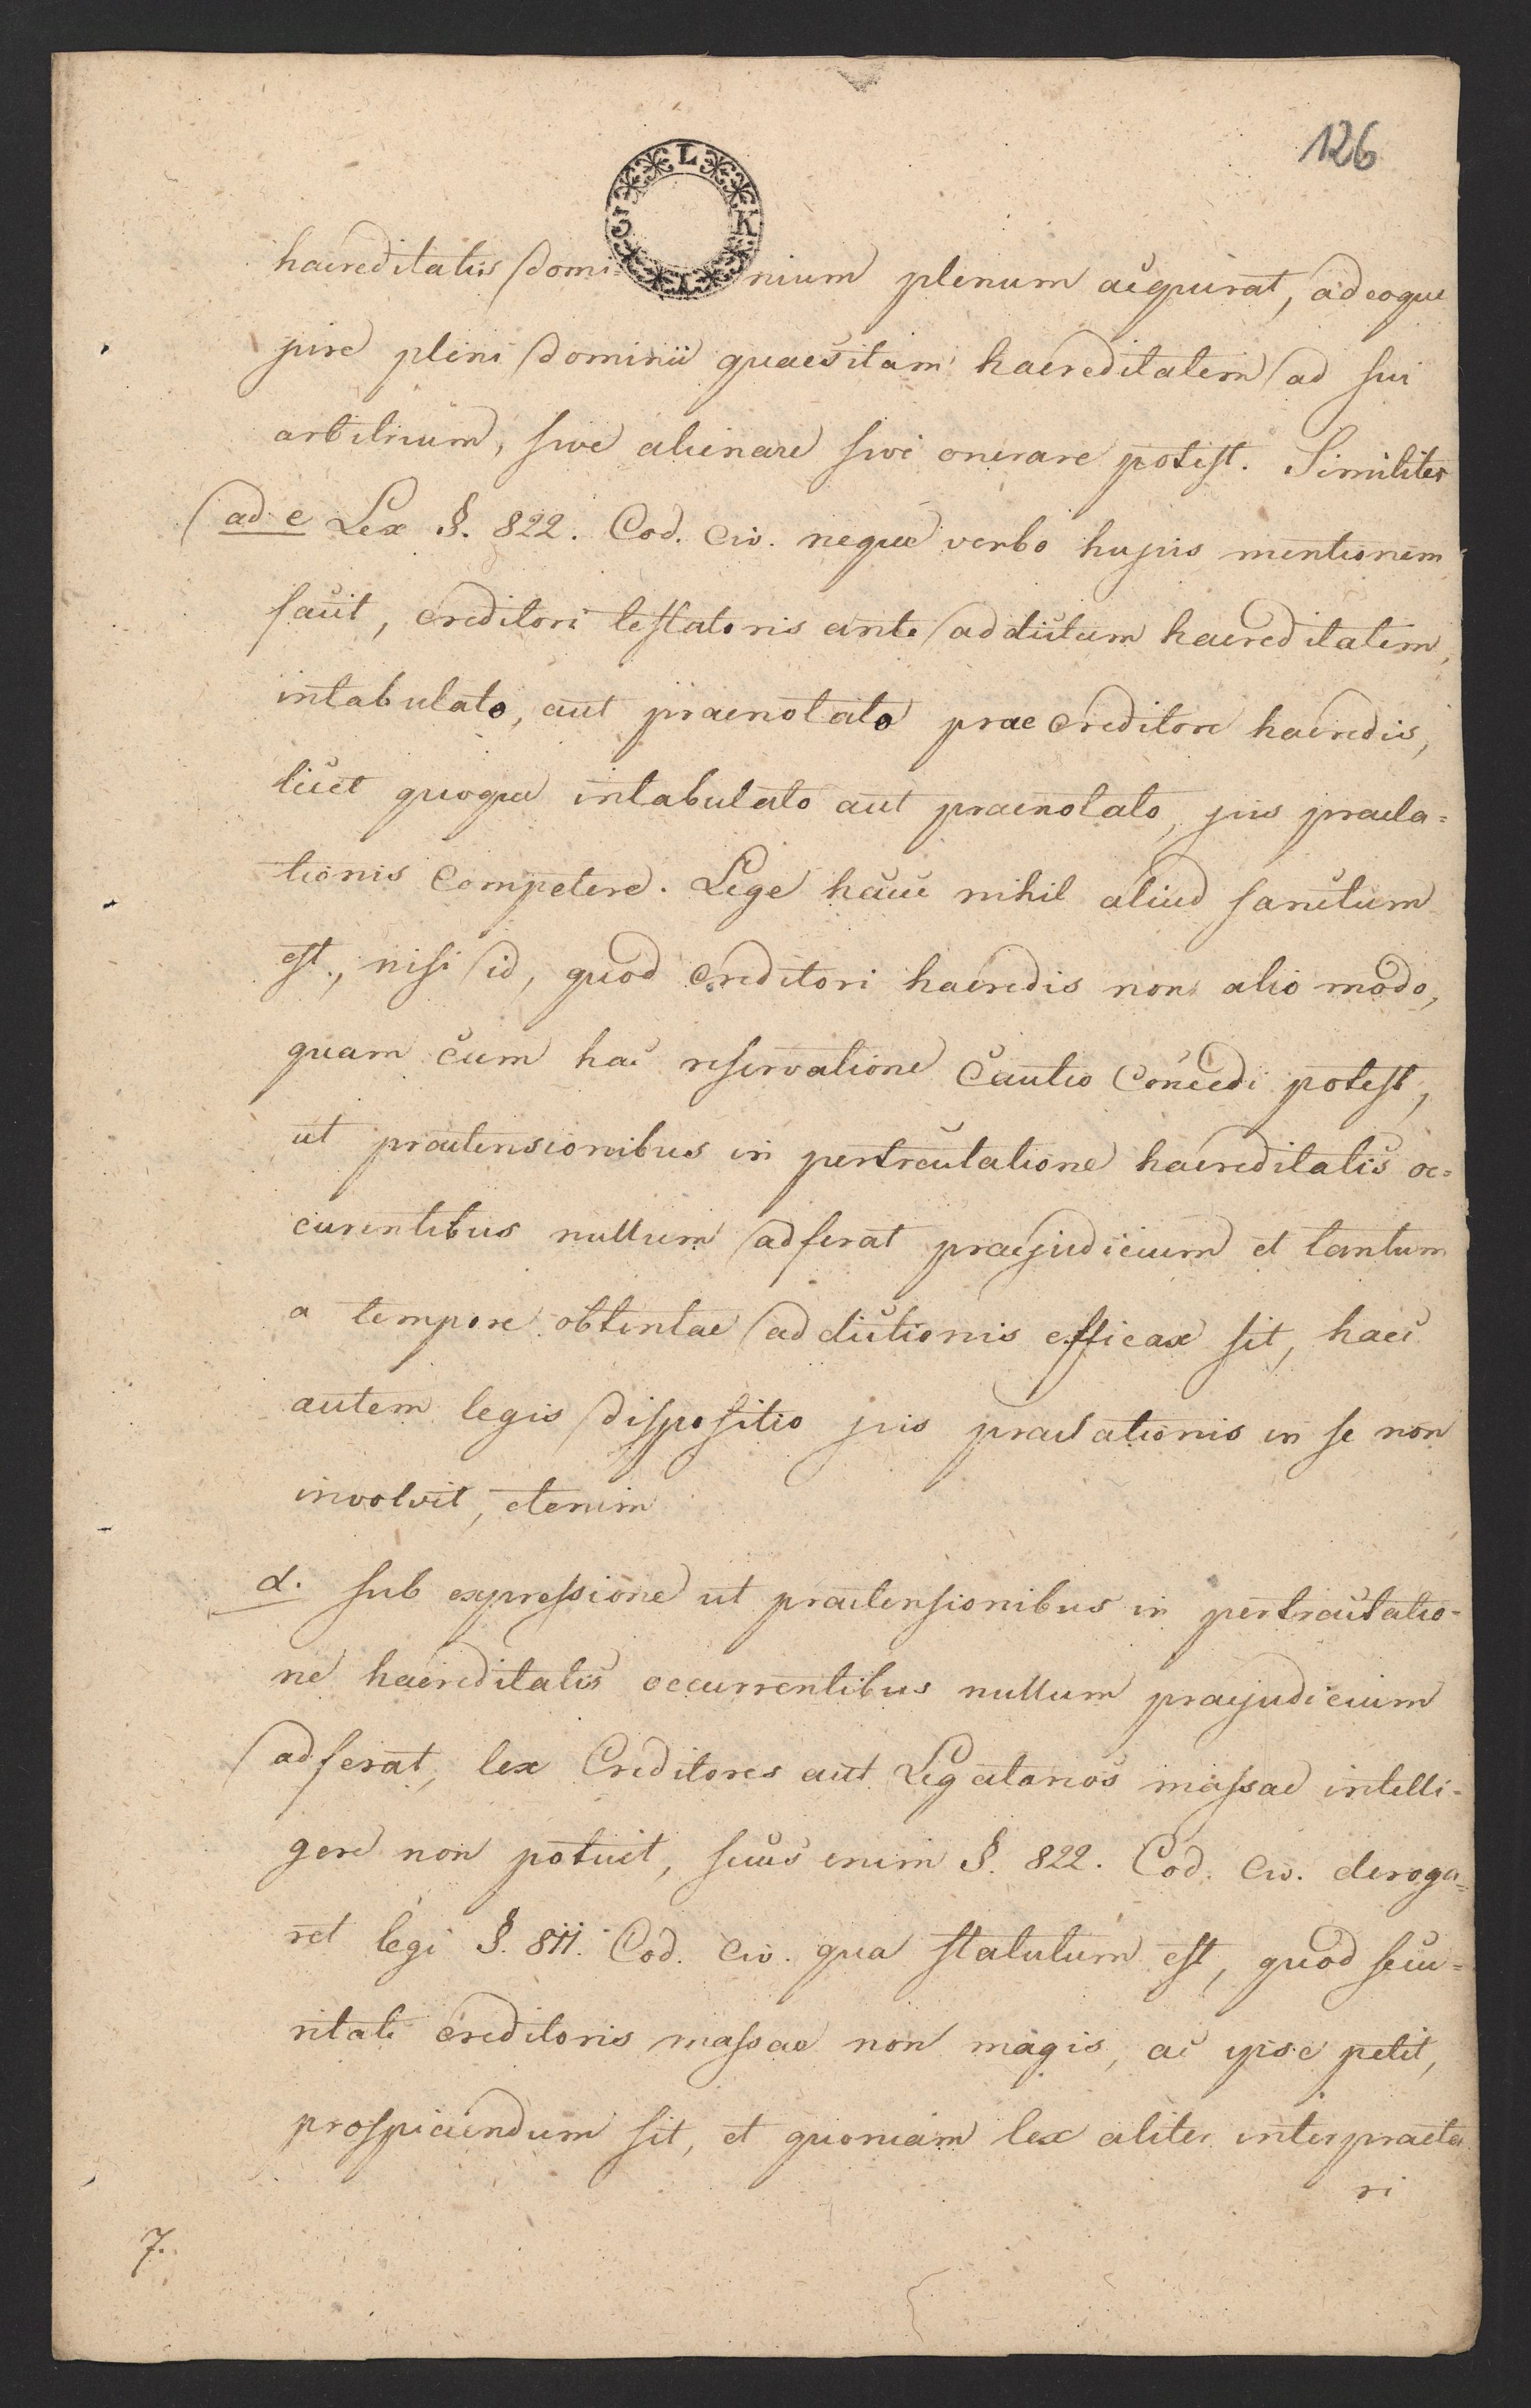 126
haereditatis domi= nium plenum acquirat, adeoque
jure pleni dominii quaesitam haereditatem ad sui
arbitrium, sive alienare sive onerare potest. Similiter
ad c Lex §. 822. Cod. civ. neque verbo hujus mentionem
facit, creditori testatoris ante addictam haereditatem,
intabulato, aut praenotato prae creditore haeredis,
licet quoque intabulato aut praenotato, jus praela=
tionis competere. Lege hacce nihil aliud sancitum
est, nisi id, quod creditori haeredis non alio modo,
quam cum hac reservatione cautio concedi potest,
ut praetensionibus in pertractatione haereditatis oc=
curentibus nullum adferat praejudicium et tantum
a tempore obtentae addictionis efficax sit, haec
autem legis dispositio jus praelationis in se non
involvit, etenim
d. sub expressione ut praetensionibus in pertractatio=
ne haereditatis occurrentibus nullum praejudicium
adferat, lex Creditores aut Legatarios massae intelli=
gere non potuit, secus enim §. 822. Cod. civ. deroga=
ret legi §. 811. Cod. civ. qua statutum est, quod secu=
ritati creditoris massae non magis, ac ipse petit,
prospiciendum sit, et quoniam lex aliter interpraeta
ri
7.